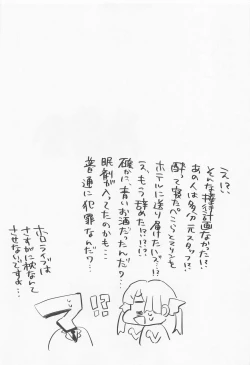 え!?
そんな接待計画なかった!?
あの人は多分元スタッフ!?
酔って寝たぺこらとマリンを
ホテルに送り届けたハズ!?
え、もう辞めた!?!?
確かに、青いお酒だたんだ?
眠剤が入ってたのかも…
普通に犯罪なんだ?
ホロライブは
さすがに枕なんて
させないですよ…
!?